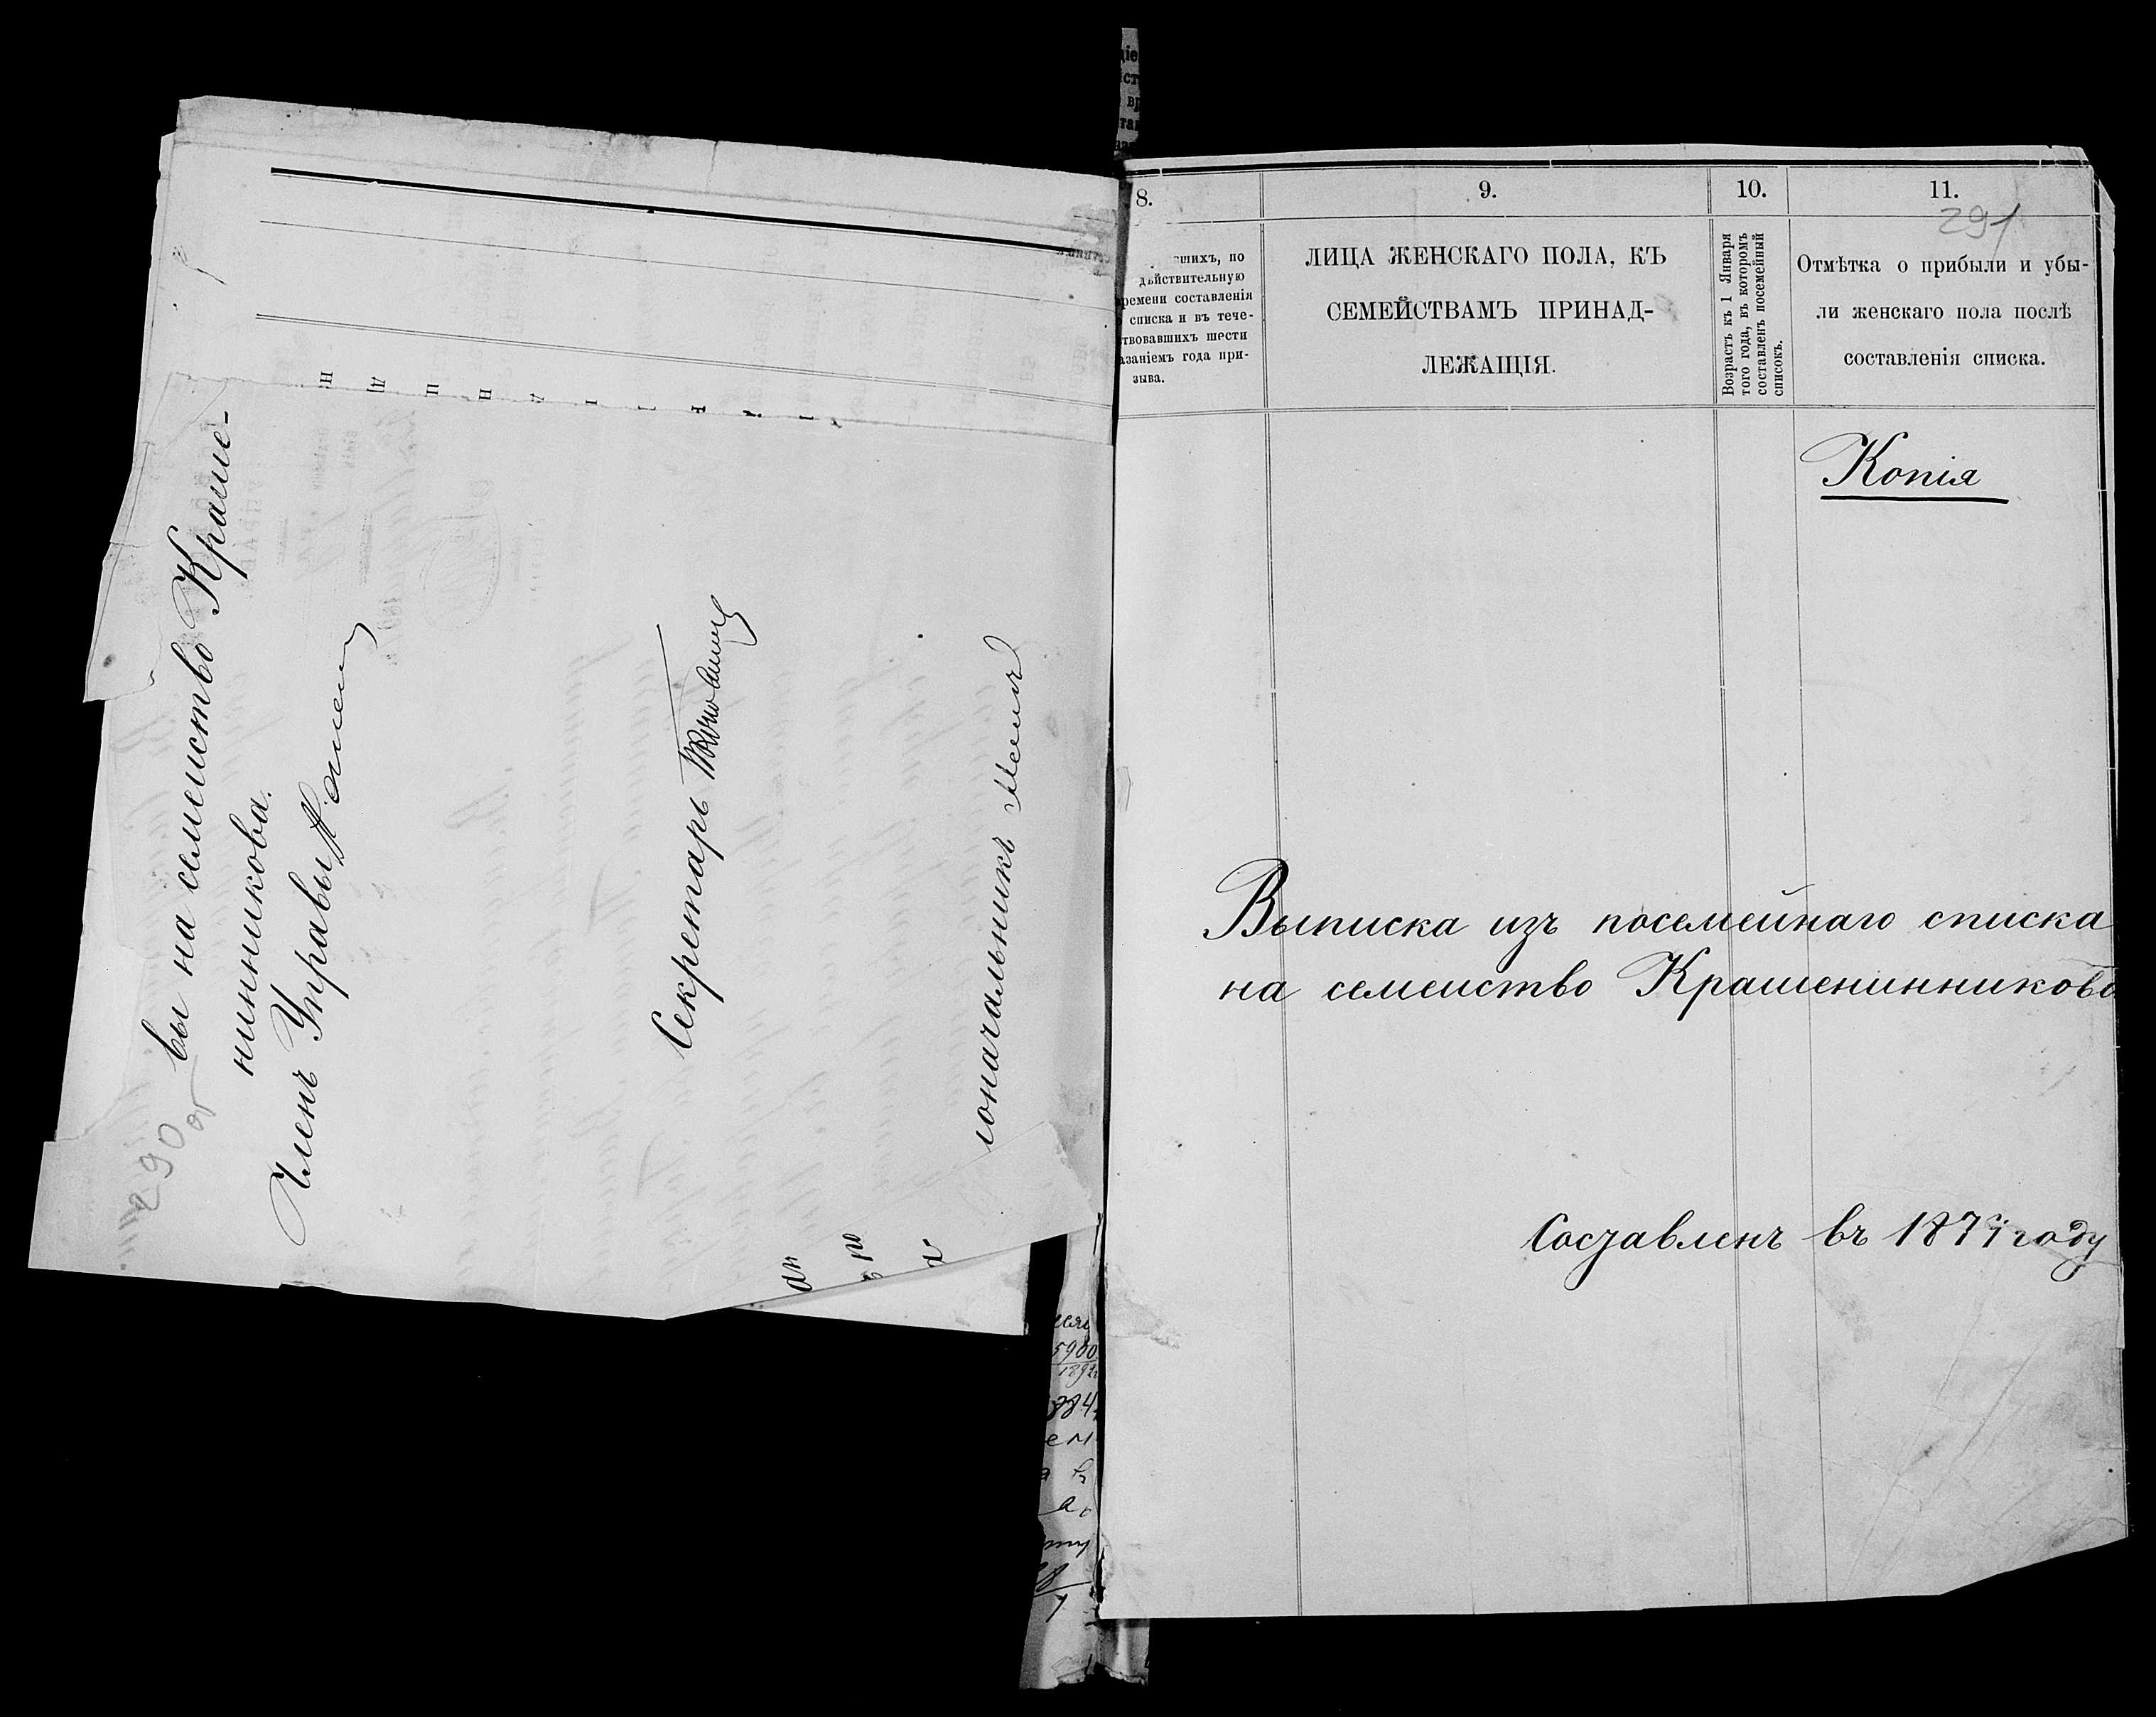 290
вы на семейство Краше-
нинникова.
Членъ Управы
Секретарь
лоначальникъ
8.
9.
10.
11.
291
шихъ, по
дѣйствительную
ремени составленія
списка и въ тече-
твовавшихъ шести
азаніемъ года при-
зыва.
ЛИЦА ЖЕНСКАГО ПОЛА, КЪ
СЕМЕЙСТВАМЪ ПРИНАД-
ЛЕЖАЩІЯ.
Возрастъ къ 1 Января
того года, въ которомъ
составленъ посемейный
списокъ.
Отмѣтка о прибыли и убы-
ли женскаго пола послѣ
составленія списка.
Копія
Выписка изъ посемейнаго списка
на семейство Крашенинниково
Составленъ въ года
5900
1892
884